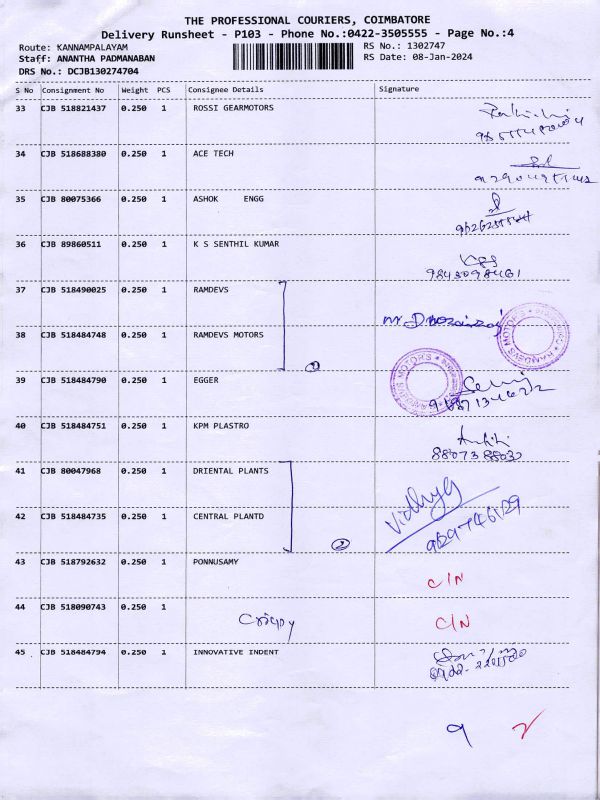 THE PROFESSIONAL COURIERS, COIMBATORE
Delivery Runsheet - P103 - Phone No.:0422-3505555 - Page No.:4
Route: KANNAMPALAYAM RS No.: 1302747
Staff: ANANTHA PADMANABAN RS Date: 08-Jan-2024
DRS No.: DCJB130274704
S No Consignment No Weight PCS Consignee Details Signature
33 CJB 518821437 0.250 1 ROSSI GEARMOTORS
34 CJB 518688380 0.250 1 ACE TECH
35 CJB 80075366 0.250 1 ASHOK ENGG
36 CJB 89860511 0.250 1 K S SENTHIL KUMAR
9843098461
37 CJB 518490025 0.250 1 RAMDEVS
38 CJB 518484748 0.250 1 RAMDEVS MOTORS
RAMDEVS MOTOR'S
RAMDEVS MOTOR'S
39 CJB 518484790 0.250 1 EGGER
40 CJB 518484751 0.250 1 KPM PLASTRO
41 CJB 80047968 0.250 1 DRIENTAL PLANTS
Vidhya
42 CJB 518484735 0.250 1 CENTRAL PLANTD
2
43 CJB 518792632 0.250 1 PONNUSAMY
C/N
44 CJB 518090743 0.250 1
C/N
45 CJB 518484794 0.250 1 INNOVATIVE INDENT
9 2